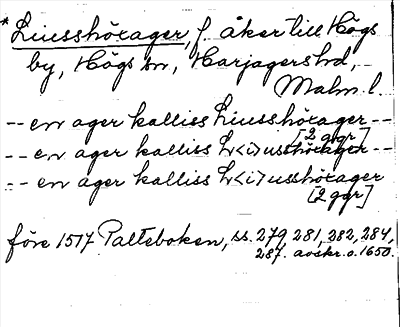 *Liusshörager, f. åker till Högs
by, Högs sn, Harjagers hd,
Malm. l.
-- en ager kalliss Liusshörager --
[2 ggr]
-- en ager kalliss L<i>usshörager --
-- en ager kalliss L<i>usshörager
[2 ggr]
före 1517 Palteboken, ss. 279, 281, 282, 284,
287. avskr. o. 1650.